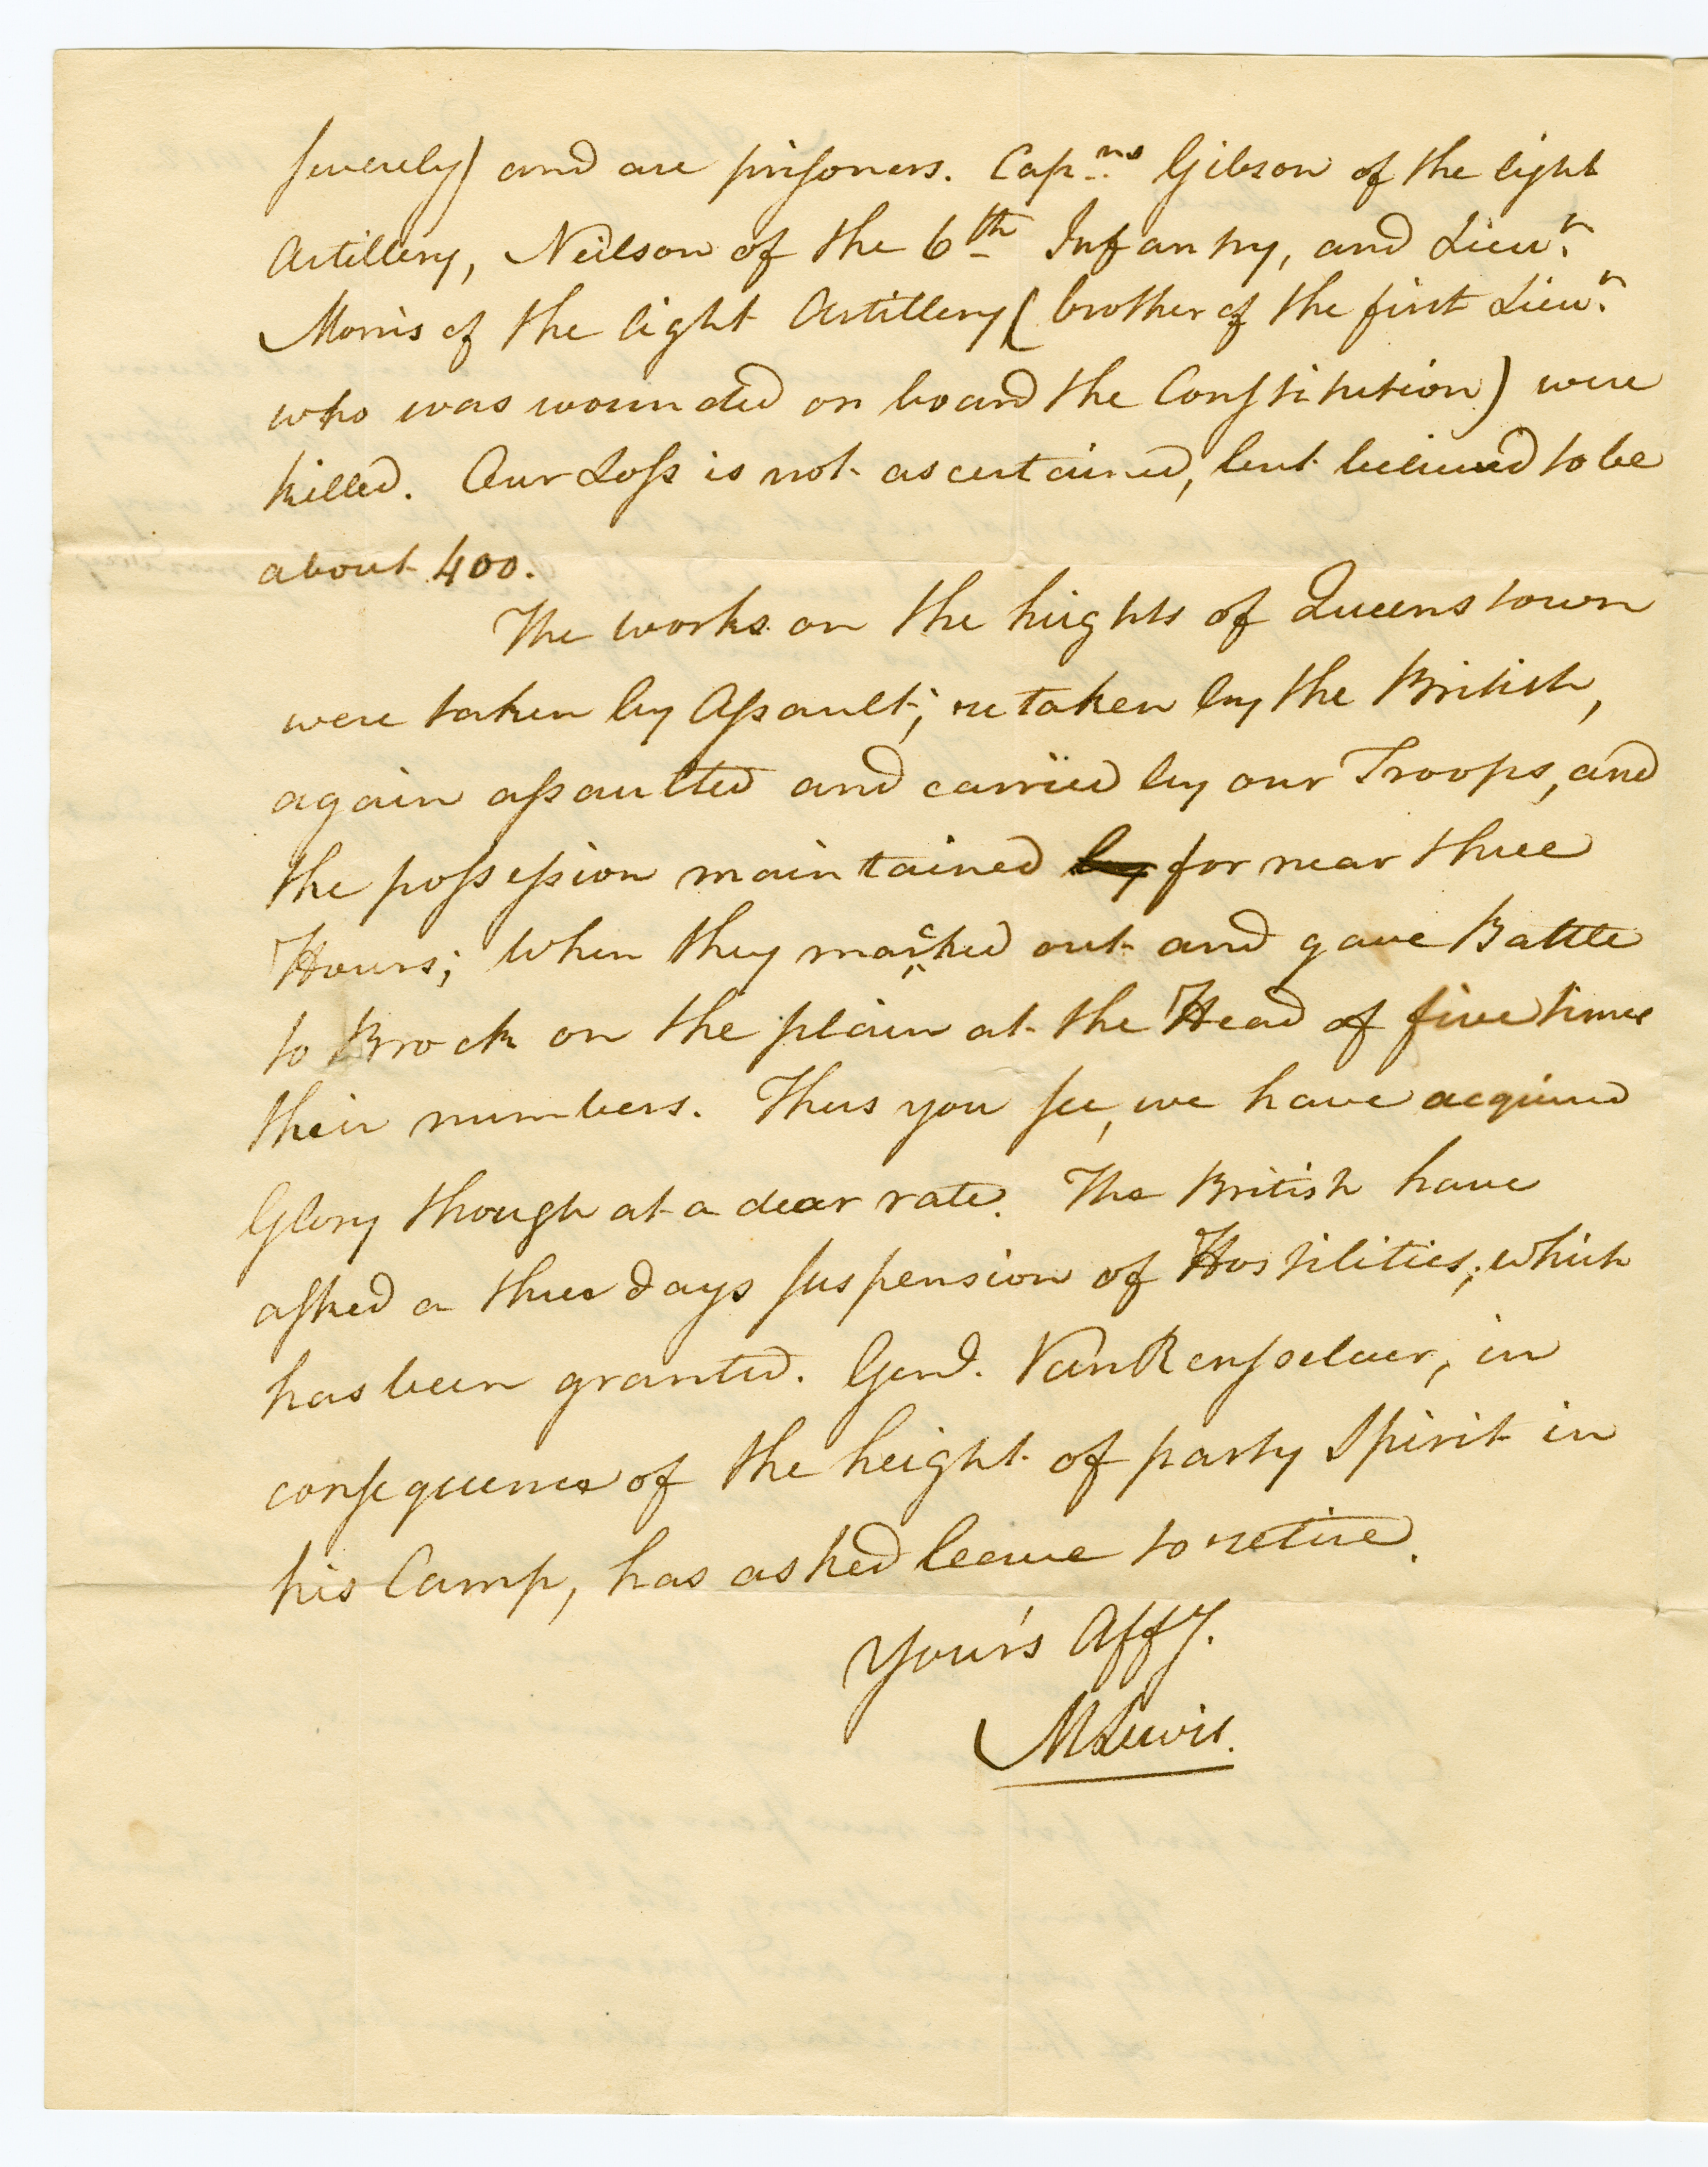 severely) and are prisoners. Cap.ns Gibson of the light
Artillery, Neilson of the 6th Infantry, and Lieut.
Morris of the light Artillery (brother of the first Lieut.
who was wounded on board the Constitution) were
killed. Our Loss is not ascertained, but believed to be
about 400.
The works on the hights of Queenstown
were taken by Assault; retaken by the British,
again assaulted and carried by our Troops, and
the possession maintained by for near three
Hours; when they marched out and gave Battle
to Brock on the plain at the Head of five times
their numbers. Thus you see, we have acquired
Glory though at a dear rate. The British have
asked a three days suspension of Hostilities; which
has been granted. Genl. VanRensselaer, in
consequence of the height of party Spirit in
his Camp, has asked leave to retire.
Your's Affy.
MLewis.